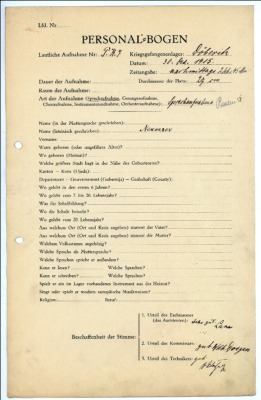 Lfd. Nr.
PERSONAL-BOGEN
Lautliche Aufnahme Nr.: P.K. Kriegsgefangenenlager:
Datum:
Zeitangabe: nachmittags
Dauer der Aufnahme: Durchmesser der Platte:
Raum der Aufnahme:
Art der Aufnahme (Sprechaufnahme, Gesangsaufnahme, Sprechaufnahme
Choraufnahme, Instrumentenaufnahme, Orchesteraufnahme):
Name (in der Muttersprache geschrieben):
Name (lateinisch geschrieben):
Vorname:
Wann geboren (oder ungefähres Alter)?
Wo geboren (Heimat)?
Welche größere Stadt liegt in der Nähe des Geburtsortes?
Kanton — Kreis (Ujezd):
Department — Gouvernement (Gubernija) — Grafschaft (County):
Wo gelebt in den ersten 6 Jahren?
Wo gelebt vom 7. bis 20. Lebensjahr?
Was für Schulbildung?
Wo die Schule besucht?
Wo gelebt vom 20. Lebensjahr?
Aus welchem Ort (Ort und Kreis angeben) stammt der Vater?
Aus welchem Ort (Ort und Kreis angeben) stammt die Mutter?
Welchem Volksstamm angehörig?
Welche Sprache als Muttersprache?
Welche Sprachen spricht er außerdem?
Kann er lesen? Welche Sprachen?
Kann er schreiben? Welche Sprachen?
Spielt er ein im Lager vorhandenes Instrument aus der Heimat?
Singt oder spielt er modern europäische Musikweisen?
Religion: Beruf:
Beschaffenheit der Stimme:
1. Urteil des Fachmannes
(des Assistenten): sehr gut
2. Urteil des Kommissars: gut
3. Urteil des Technikers: gut